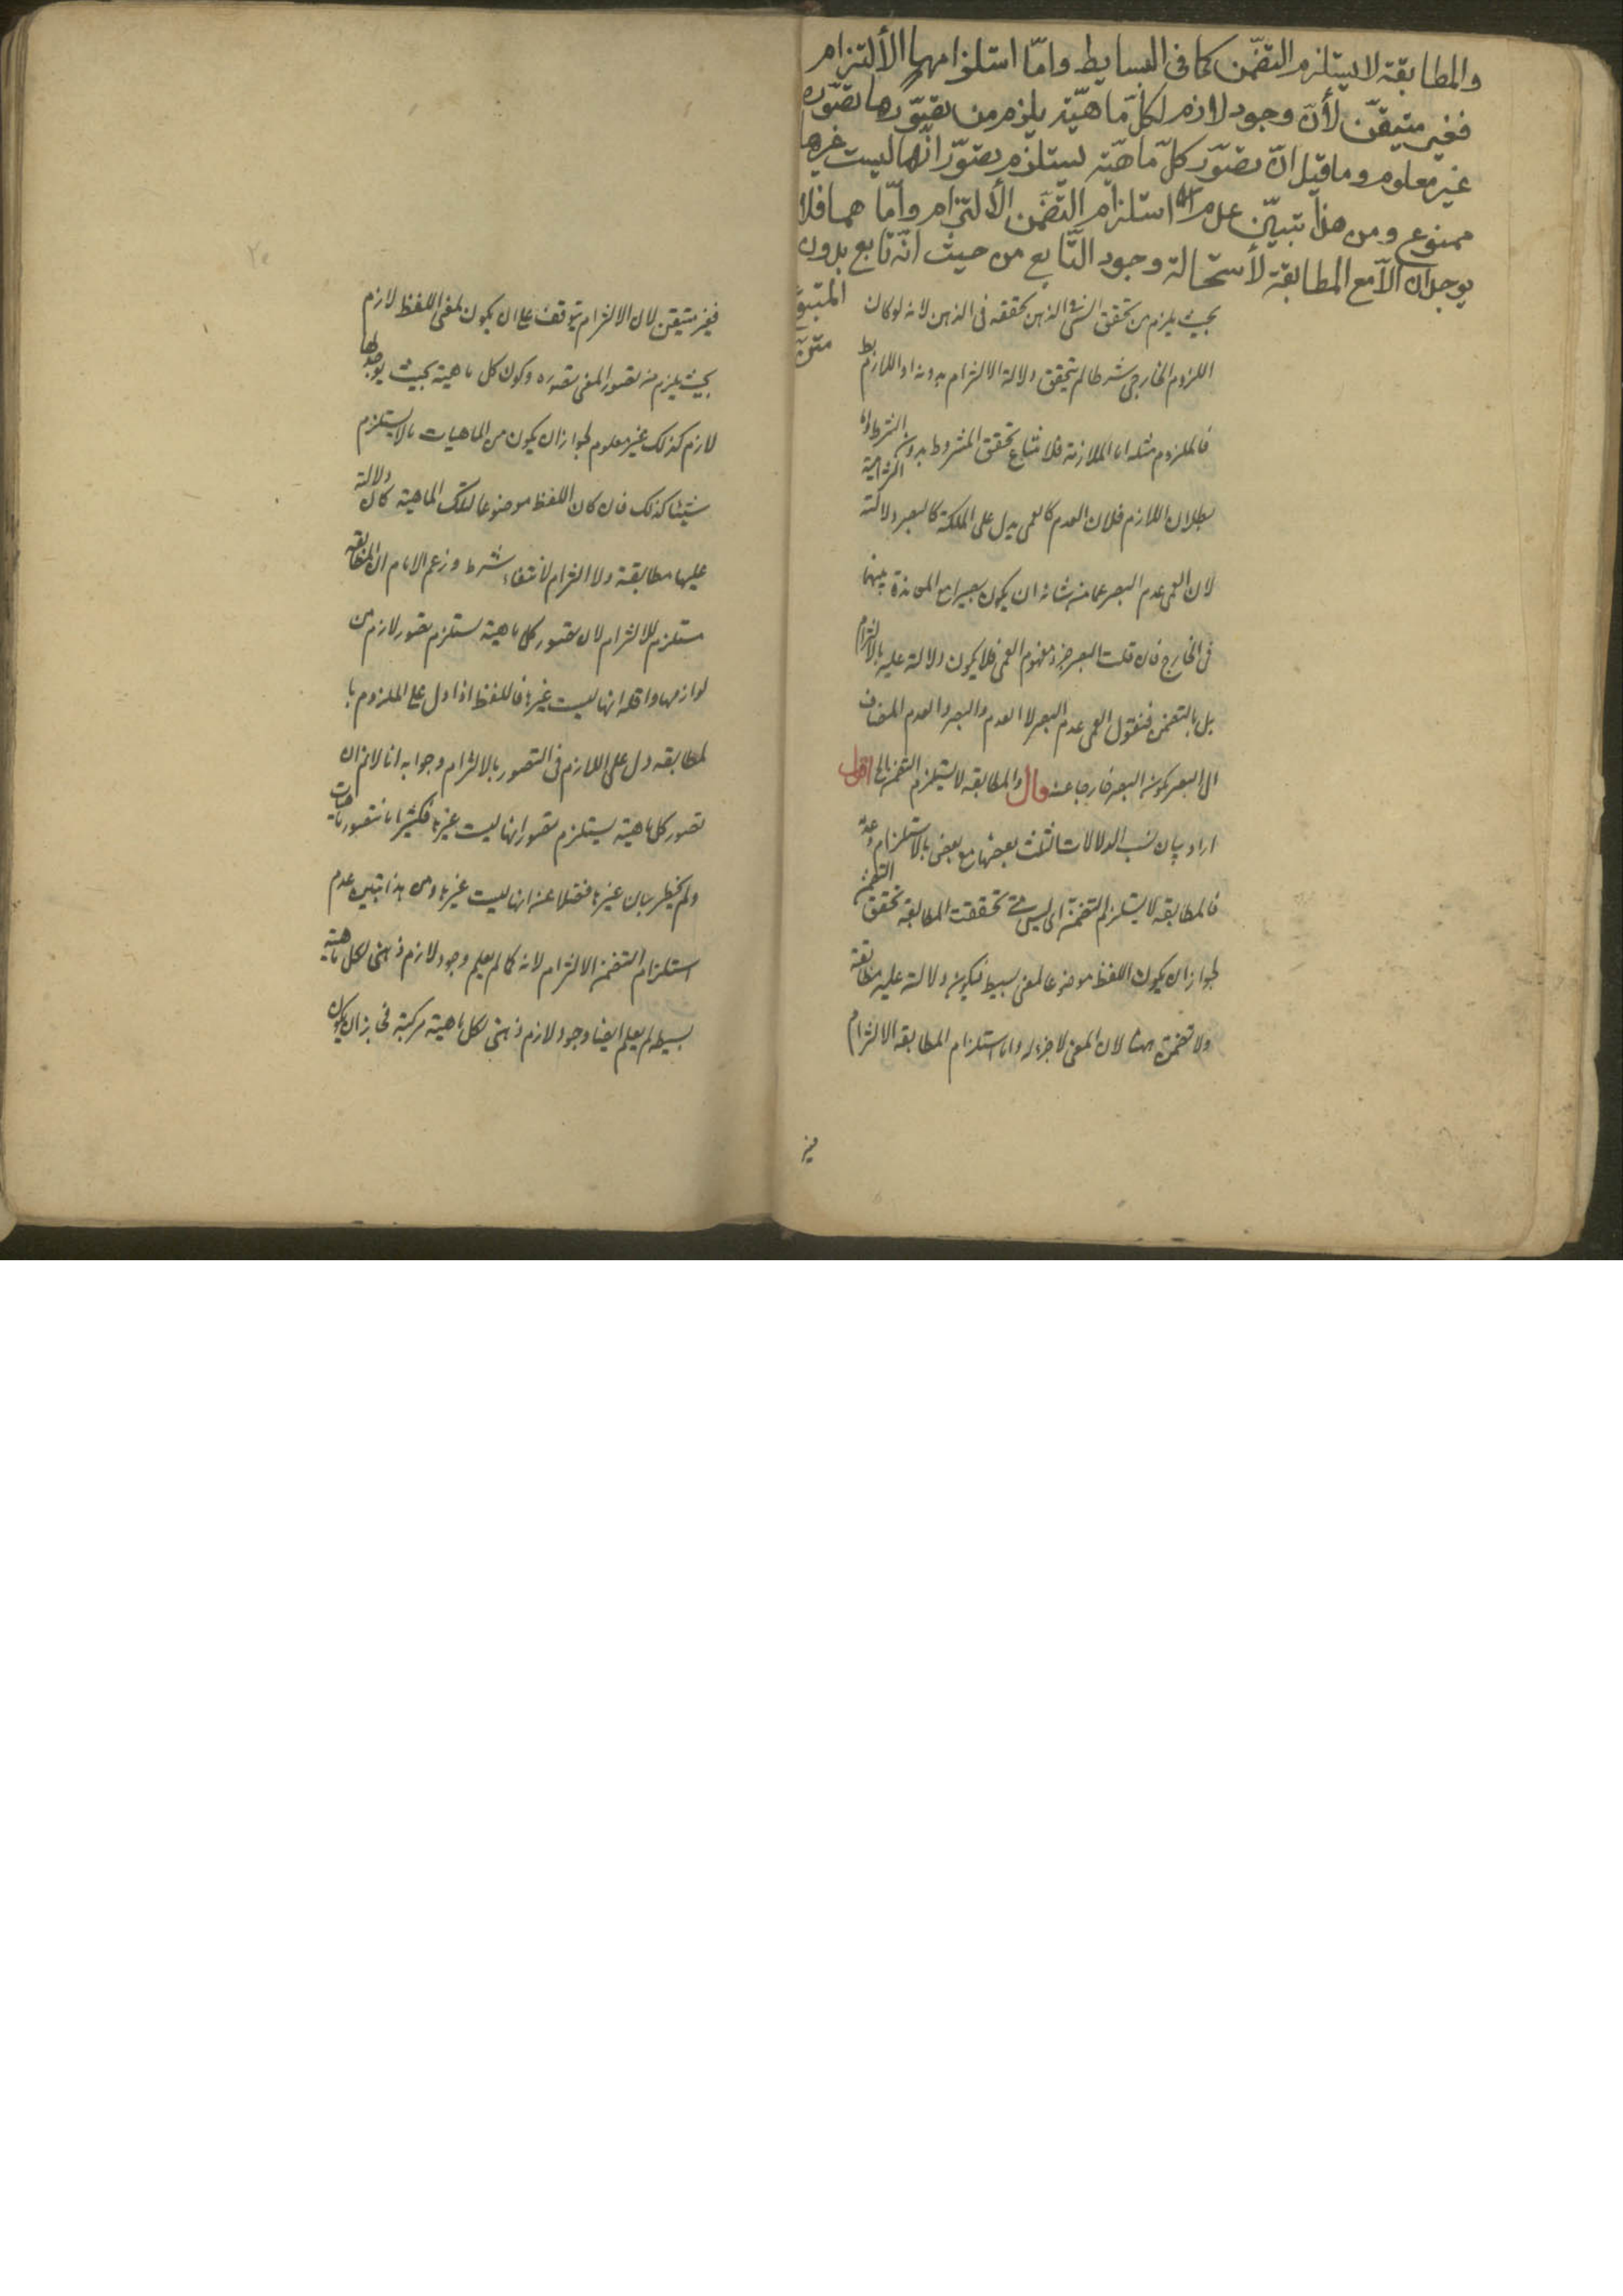 والمطابقة لا يستلزم التضمّن كما فى البسايط وامّا استلزامهما الألتزام
فغير متيقّن لأنّ وجود لازم لكلّ ماهيّة يلزم من تصوّرها تصوّره
غير معلوم وما قيل انّ تصوّر كلّ ماهيّة يستلزم تصوّر انّها ليست غيرها
ممنوع ومن هذا تبيّن عدم استلزام التضمّن الألتزام وامّا هما فلا
يوجدان الّا مع المطابقة لأستحالة وجود التّابع من حيث انّه تابع بدون
المتبوع
متن
بحيث يلزم من تحقق الشئ فى الذهن تحققه فى الذهن لانه لو كان
اللزوم الخارجى شرطا لم يتحقق دلالة الالتزام بدونه واللازم بط
فالملزوم مثله اما الملازمة فلامتناع تحقق المشروط بدون الشرط واما
بطلان اللازم فلان العدم كالعمى يدل على الملكة كالبصر دلالته التزامية
لان العمى عدم البصر عما من شانه ان يكون بصيرا مع المعاندة بينهما
فى الخارج فان قلت البصر جزء مفهوم العمى فلا يكون دلالته عليه بالالتزام
بل بالتضمن فنقول العمى عدم البصر لا العدم والبصر والعدم المضاف
الى البصر يكون البصر خارجا عنه قال والمطابقة لا يستلزم التضمن الخ اقول
اراد بيان نسب الدلالات الثلث بعضها مع بعض بالاستلزام وعدمه
فالمطابقة لا يستلزم التضمن اى ليس متى تحققت المطابقة تحقق التضمن
لجواز ان يكون اللفظ موضوعا لمعنى بسيط فيكون دلالته عليه مطابقة
ولا تضمن ههنا لان المعنى لا جزء له واما استلزام المطابقة الالتزام
فغير متيقن لان الالتزام يتوقف على ان يكون لمعنى اللفظ لازم
بحيث يلزم من تصور المعنى تصوره وكون كل ماهية بحيث يوجد لها
لازم كذلك غير معلوم لجواز ان يكون من الماهيات ما لا يستلزم
شيئا كذلك فان كان اللفظ موضوعا لتلك الماهية كان دلالته
عليها مطابقة ولا التزام لانتفاء شرطه وزعم الامام ان المطابقة
مستلزم للالتزام لان تصور كل ماهية يستلزم تصور لازم من
لوازمها واقله انها ليست غيرها فاللفظ اذا دل على الملزوم با
لمطابقة دل على اللازم فى التصور بالالتزام وجوابه انا لانم ان
تصور كل ماهية يستلزم تصور انها ليست غيرها فكثيرا ما نتصور ماهيات
ولم يخطر ببان غيرها فضلا عن انها ليست غيرها ومن هذا تبين عدم
استلزام التضمن الالتزام لانه كما لم يعلم وجود لازم ذهنى لكل ماهية
بسيطة لم يعلم ايضا وجود لازم ذهنى لكل ماهية مركبة فجاز ان يكون